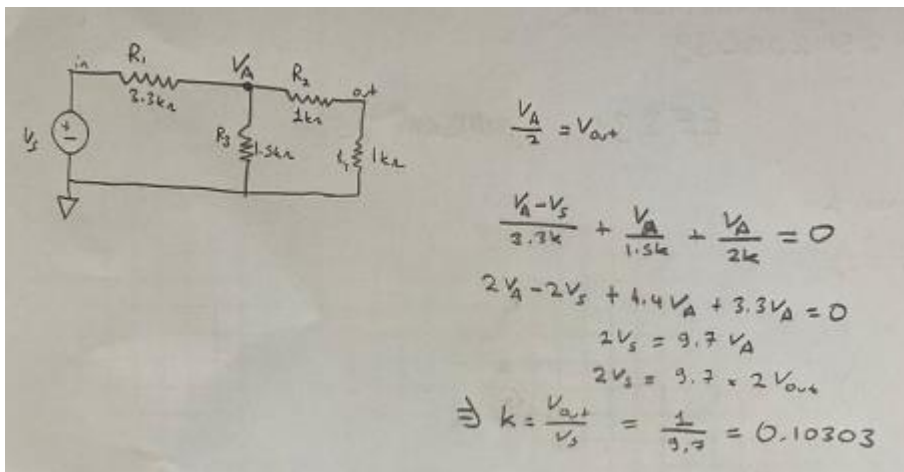 in R₁ V_A R₂ out
3.3kΩ 1kΩ
V_s + - R₃ 1.5kΩ 1kΩ
V_A/2 = V_out
(V_A-V_s)/3.3k + V_A/1.5k + V_A/2k = 0
2V_A - 2V_s + 4.4V_A + 3.3V_A = 0
2V_s = 9.7 V_A
2V_s = 9.7 × 2V_out
⇒ k = V_out/V_s = 1/9.7 = 0.10303